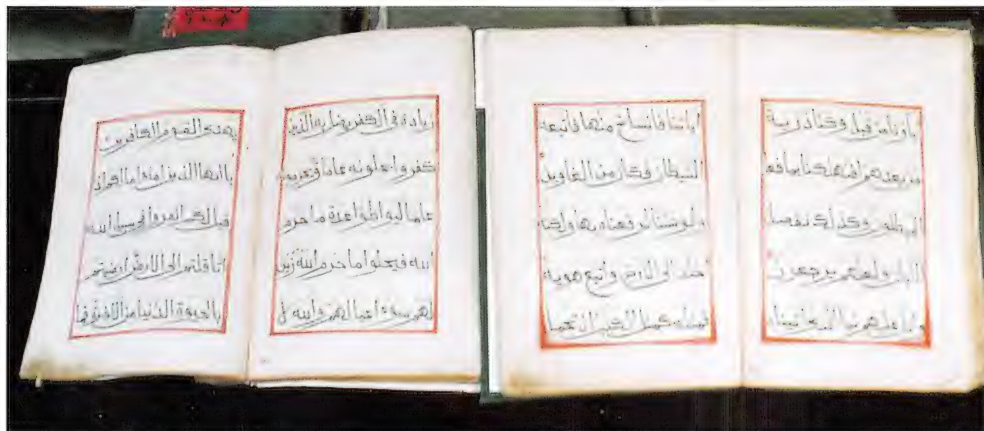 اباؤنا من قبل وكنا ذرية
من بعدهم افتهلكنا بما فعل
المبطلون وكذلك نفصل
الايات ولعلهم يرجعون
واتل عليهم نبا الذي اتيناه
اياتنا فانسلخ منها فاتبعه
الشيطان فكان من الغاوين
ولو شئنا لرفعناه بها ولكنه
اخلد الى الارض واتبع هويه
فمثله كمثل الكلب ان تحمل
زيادة في الكفر يضل به الذين
كفروا يحلونه عاما ويحرمونه
عاما ليواطوا عدة ما حرم
الله فيحلوا ما حرم الله زين
لهم سوء اعمالهم والله لا
يهدي القوم الكافرين
يا ايها الذين امنوا ما لكم اذا
قيل لكم انفروا في سبيل الله
اثاقلتم الى الارض ارضيتم
بالحيوة الدنيا من الاخرة فما